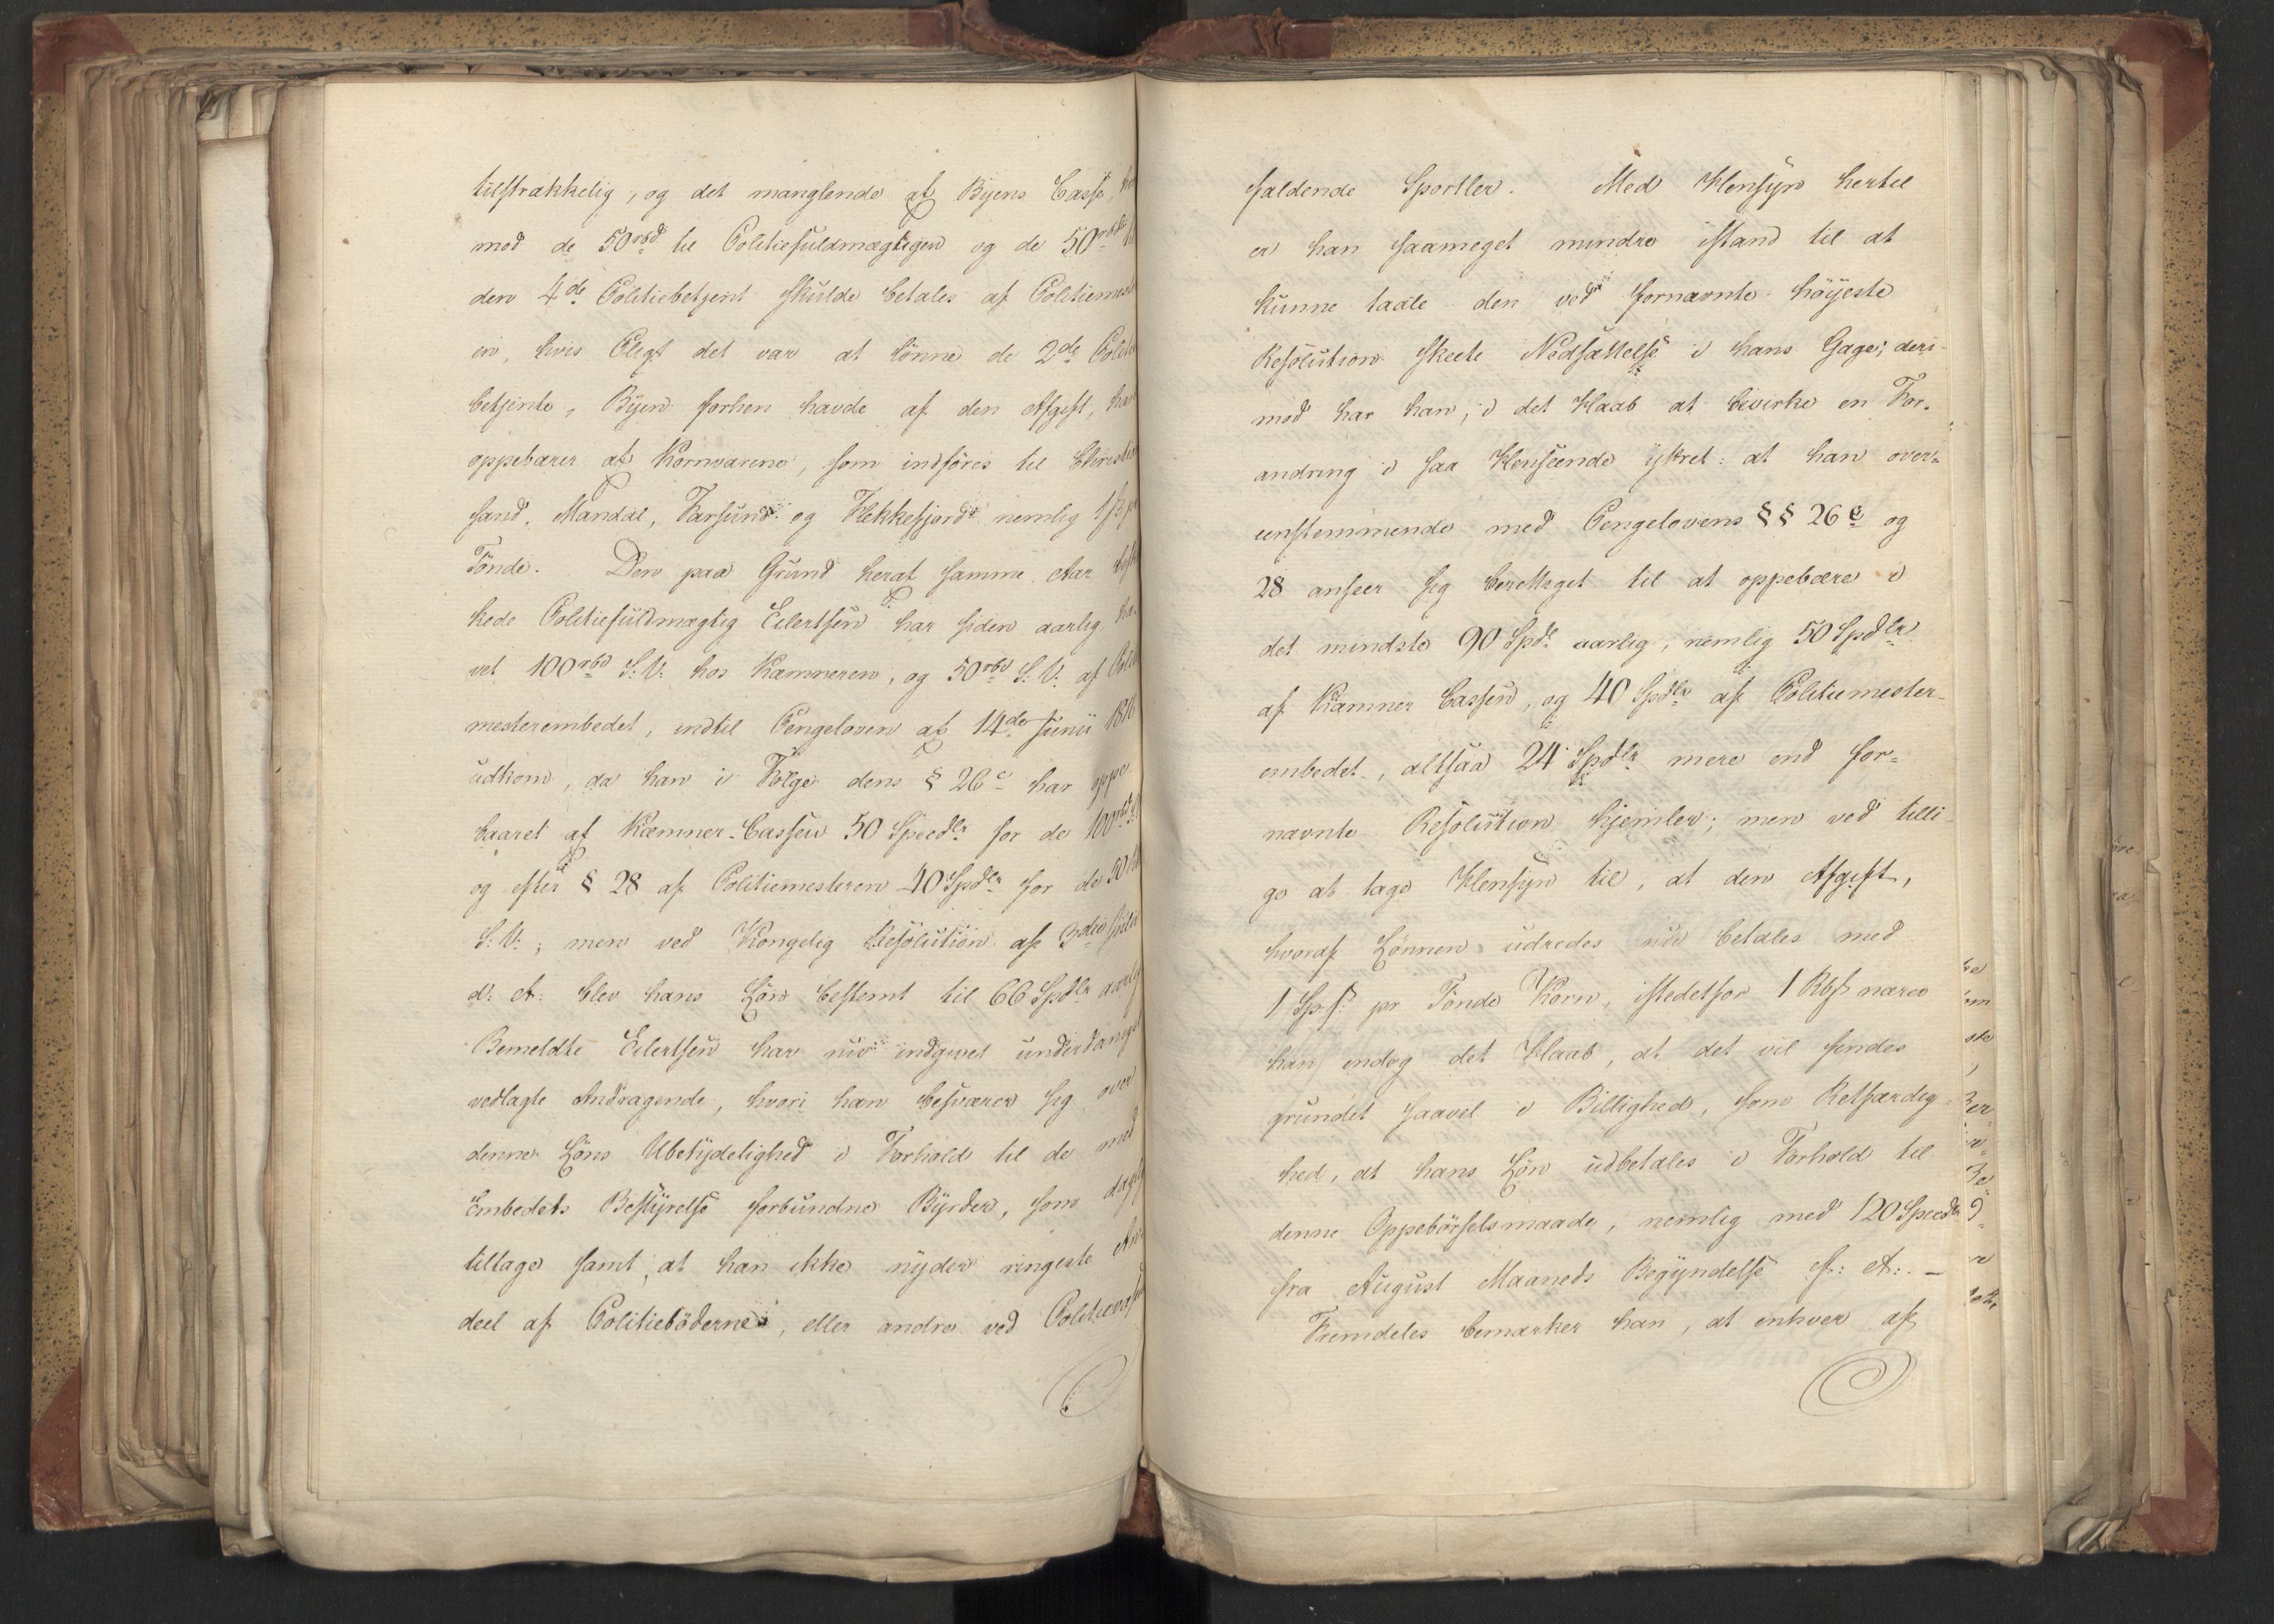 tilstrækkelig, og det manglende af Byens Casse,
mod de 50rbd til Politiefuldmægtigen og de 50rbd
den 4de Politiebetjent skulde betales af Politiemest
en, hvis Pligt det var at lönne de 2de Politie
betjente, Byen forhen havde af den Afgift, han
oppebærer af Kornvarene, som indföres til Christian
sand, Mandal, Farsund og Flekkefjord nemlig 1 ß pr
Tönde. Den paa Grund heraf samme Aar beskik
kede Politiefuldmægtig Eilertsen har siden aarlig hæ
vet 100rbd S: V: hos Kæmneren, og 50rbd S: V: af Politie
mesterembedet, indtil Pengeloven af 14de Junii 1816
udkom, da han i Fölge dens § 26 c har oppe
baaret af Kæmner-Cassen 50 Specdlr for de 100rbd S:
og efter § 28 af Politiemesteren 40 Spdlr for de 50
S: V:; men ved Kongelig Resolution af 3die
d: A: blev hans Lön bestemt til 66 Spdlr aarlig
Bemeldte Eilertsen har nu indgivet underdanigst
vedlagte Andragende, hvori han besværer sig over
denne Löns Ubetydelighed i Forhold til de med
Embedets Bestyrelse forbundne Byrder, som daglig
tiltage samt, at han ikke nyder ringeste An
deel af Politieböderne, eller andre ved Politievæs
faldende Sportler. Med Hensyn hertil
er han saameget mindre istand til at
kunne taale den ved fornævnte höyeste
Resolution skeete Nedsættelse i hans Gage; deri-
mod har han, i det Haab at bevirke en For-
andring i saa Henseende yttret: at han over-
eenstemmende med Pengelovens §§ 26 c og
28 anseer sig berettiget til at oppebære i
det mindste 90 Spd: aarlig, nemlig 50 Spdlr
af Kæmner Cassen, og 40 Spdlr af Politiemester-
embedet, altsaa 24 Spdlr mere end for-
nævnte Resolution hjemler; men ved tilli-
ge at tage Hensyn til, at den Afgift,
hvoraf Lönnen udredes nu betales med
1 Sp.ß: pr Tönde Korn, istedetfor 1 Rbß nærer
han endog det Haab, at det vil findes
grundet saavel i Billighed, som Retfærdig-
hed, at hans Lön udbetales i Forhold til
denne Oppebörselsmaade, nemlig med 120 Specdlr
fra August Maaneds Begyndelse f: A: . —
Fremdeles bemærker han, at enhver af